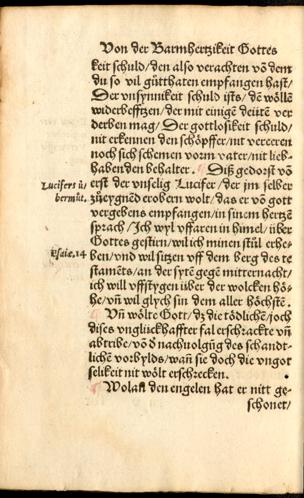 Von der Barmhertzikeit Gottes
keit schuld/den also verachten vō dem
du so vil gütthaten empfangen hast/
Der vnsynnikeit schuld ists/ dē wöllē
widerbefftzen/der mit einigē deütē ver
derben mag/ Der gottlosikeit schuld/
nit erkennen den schöpffer/nit vereeren
noch sich schemen vorm vater/nit lieb-
haben den behalter. ¶ Diß gedorst vō
Lucifers ü
bermüt.
erst der vnselig Lucifer /der jm selber
zůeygnēd erobern wolt/das er vō gott
vergebens empfangen/in sinem hertzē
sprach/ Ich wyl vffaren in himel/über
Gottes gestirn/wil ich minen stůl erhe-
Esaie.14
ben/vnd wil sitzen vff dem berg des te
staments/an der sytē gegē mitternacht/
ich will vffstygen über der wolcken hö-
he/vñ wil glych sin dem aller höchstē.
¶ Vñ wölte Gott/dz die tödlichē/joch
dises vngliickhaffter fal erschrackte vñ
abtribe/vō ð nachuolgūg des schandt-
lichē vorbylds/wañ sie doch die vngot
selikeit nit wölt erschrecken.
¶ Wolan den engelen hat er nitt ge-
schonet/